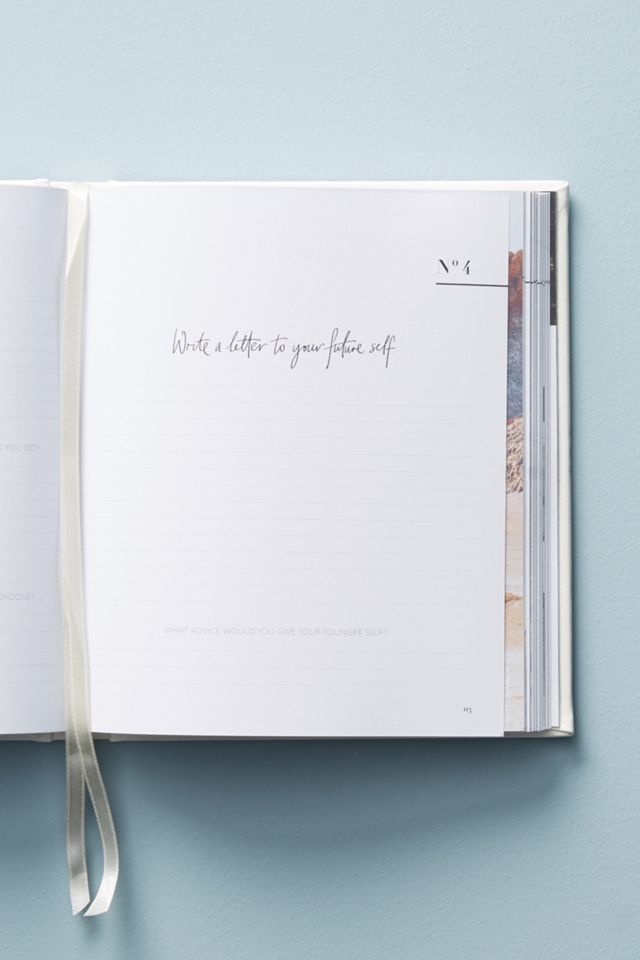 YOU DO?
CHOOSE?
Nº 4
Write a letter to your future self
WHAT ADVICE WOULD YOU GIVE YOUR YOUNGER SELF?
113